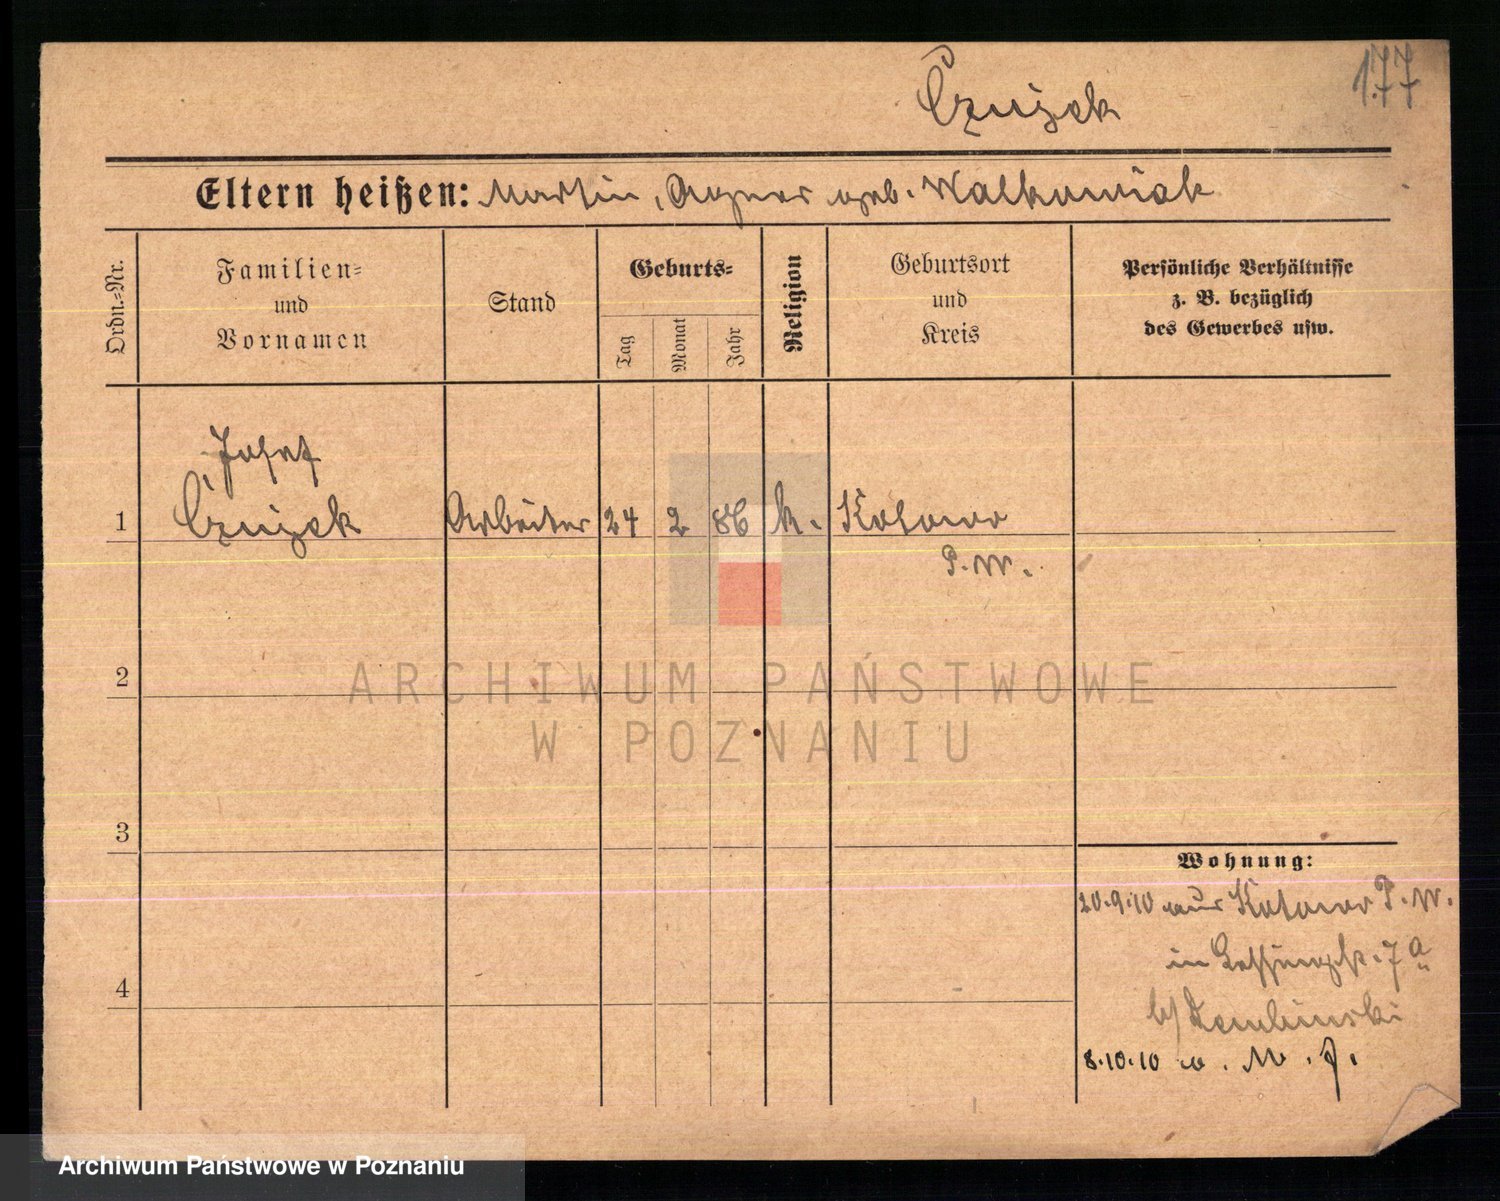 177
Czujek
Eltern heißen: Martin, Agnes geb. Walkowiak
Ordn.=Nr.
Familien=
und
Vornamen
Stand
Geburts=
Tag
Monat
Jahr
Religion
Geburtsort
und
Kreis
Persönliche Verhältnisse
z. B. bezüglich
des Gewerbes usw.
Josef
1 Czujek Arbeiter 24 2 86 k. Kotowo
P. W.
2
ARCHIWUM PAŃSTWOWE
W POZNANIU
3
Wohnung:
20.9.10 aus Kotowo P. W.
in Lessingstr. 7a
4
b/ Dembinski
8.10.10 a. W.
Archiwum Państwowe w Poznaniu